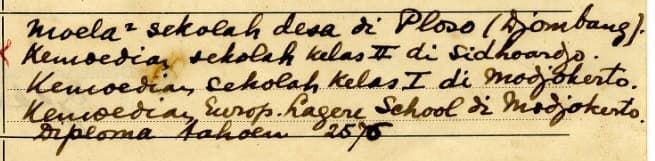 Moela² sekolah desa di Ploso (Djombang).
Kemoedian sekolah kelas II di Sidhoardjo.
Kemoedian sekolah kelas I di Modjokerto.
Kemoedian Europ. Lagere School di Modjokerto.
Diploma tahoen 2575